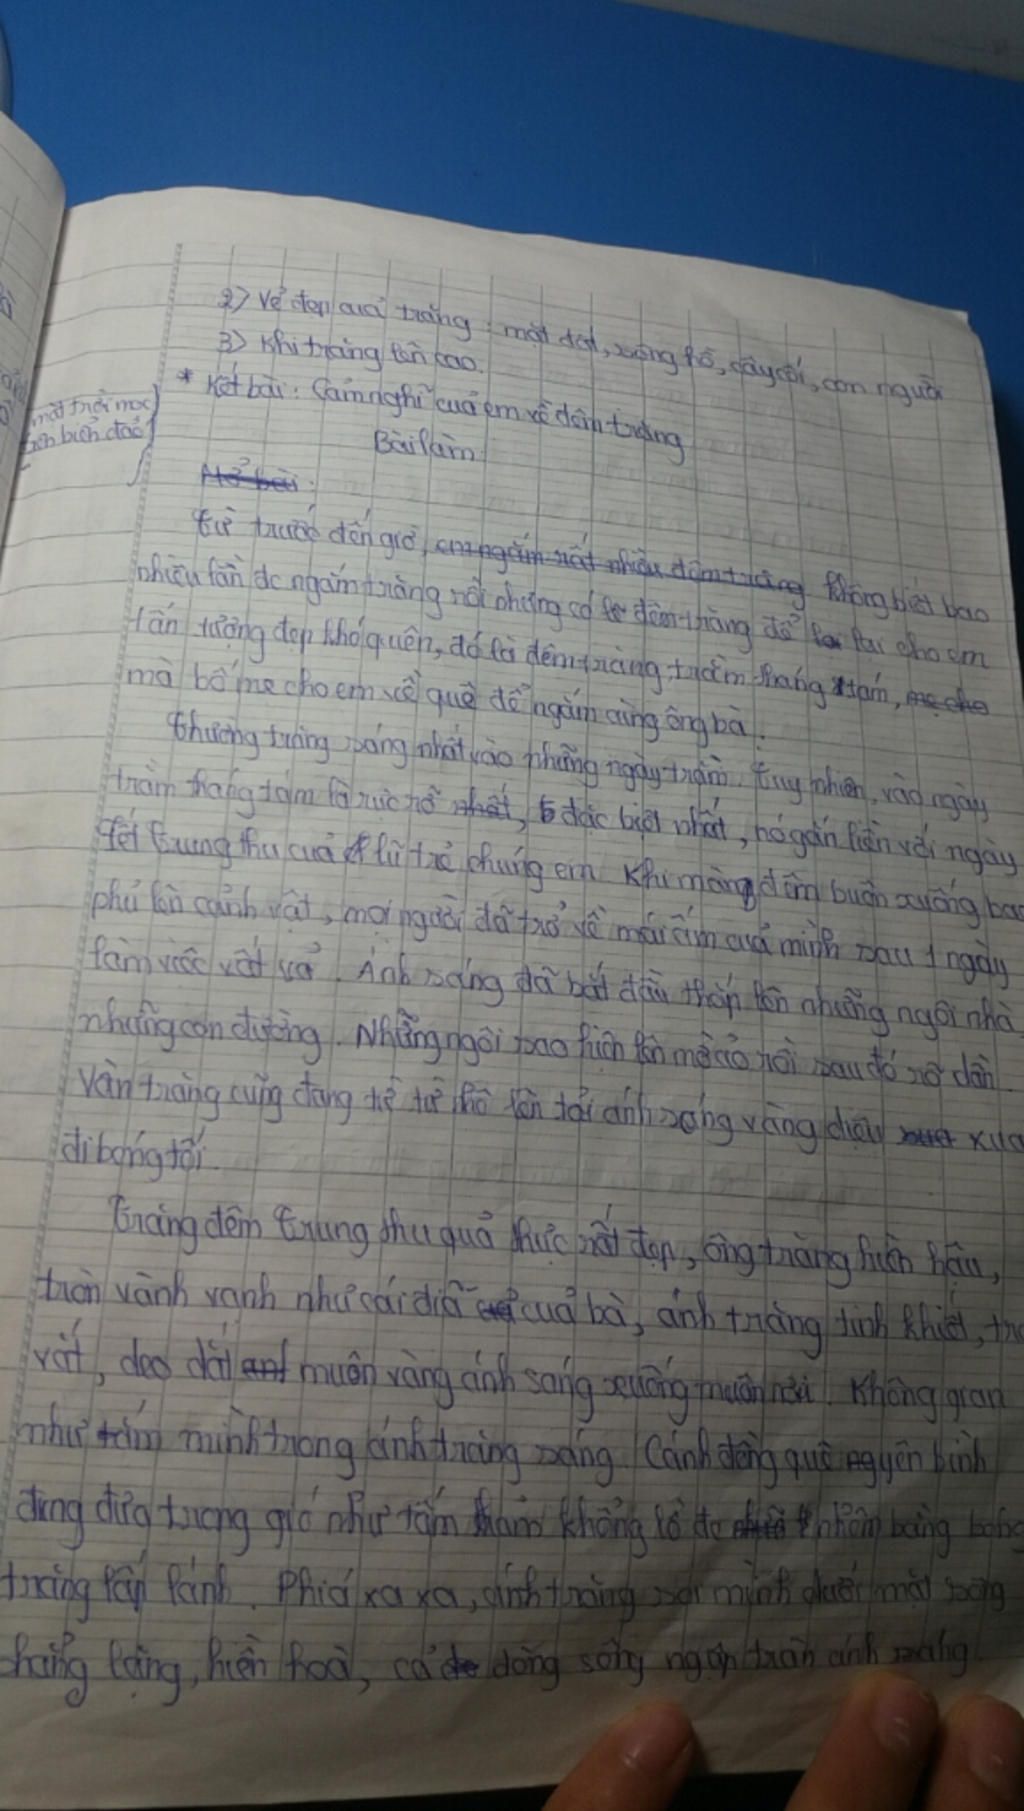 2) Vẻ đẹp quả trăng : mặt đất, sông hồ, cây cối, con người
3) Khi trăng lên cao.
* Kết bài : Cảm nghĩ của em về đêm trăng
mặt trời mọc
trên biển đảo
Bài làm
Mở bài :
Từ trước đến giờ, em ngắm rất nhiều đêm trăng không biết bao
nhiêu lần đc ngắm trăng rồi nhưng có đêm trăng để lại cho em
ấn tượng đẹp khó quên, đó là đêm trăng trằm tháng tám, mẹ cho
mà bố mẹ cho em về quê để ngắm cùng ông bà.
Thường trăng sáng nhất vào những ngày trằm. Tuy nhiên, vào ngày
trằm tháng tám là rực rỡ nhất, đặc biệt nhất, nó gắn liền với ngày
Tết Trung thu của lũ trẻ chúng em. Khi màng đêm buồn xuống bao
phủ lên cảnh vật, mọi người đã trở về mái ấm của mình sau 1 ngày
làm việc vất vả. Ánh sáng đã bắt đầu thắp lên những ngôi nhà
những con đường. Những ngôi sao hiện lên mờ ảo rồi sau đó rõ dần.
Vần trăng cũng đang từ từ nhô lên tải ánh sáng vàng dịu xua
đi bóng tối.
Trăng đêm Trung thu quả thực rất đẹp, ông trăng hiền hậu,
tròn vành vạnh như cái đĩa của bà, ánh trăng tinh khiết,
vắt, dẻo dát muôn vàng ánh sáng xuống muôn nơi. Không gian
như tắm mình trong ánh trăng sáng. Cánh đồng quê yên bình
đung đưa trong gió như tấm thảm khổng lồ đc nhôm bằng bóng
trăng lấp lánh. Phía xa xa, ánh trăng soi mình dưới mặt sông
phẳng lặng, hiền hoà, cả dòng sông ngập tràn ánh sáng.